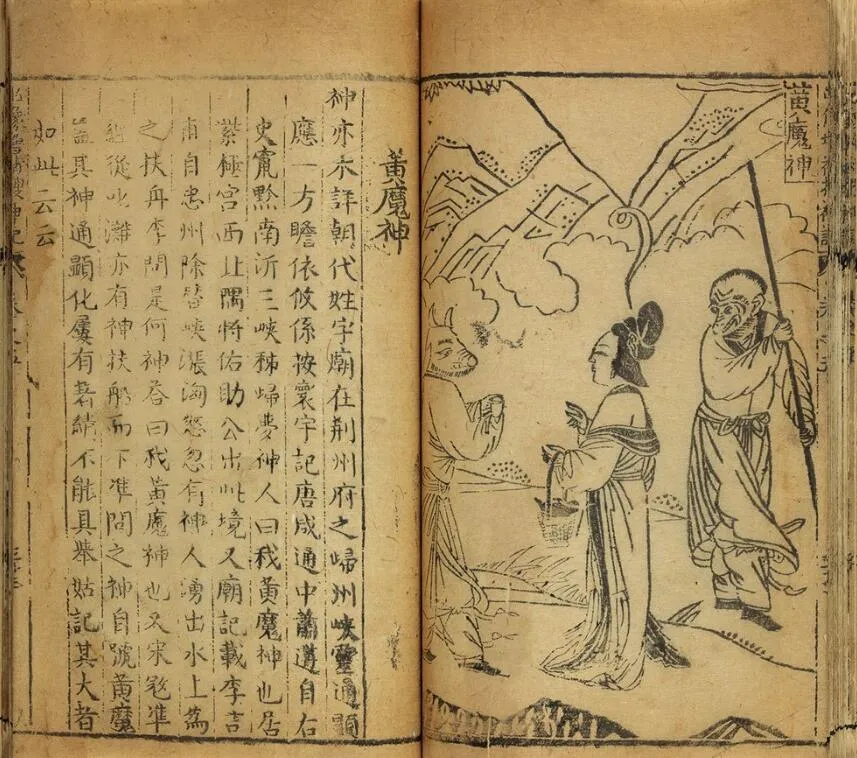 黃魔神
黃魔神
神亦不詳朝代姓字廟在荆州府之歸州峽靈通顯
應一方瞻依攸係按寰宇記唐咸通中蕭遘自右
史竄黔南泝三峽秭歸夢神人曰我黃魔神也居
紫極宮西北隅將佑助公出此境又廟記載李吉
甫自忠州除替峽漲洶怒忽有神人湧出水上為
之扶舟李問是何神荅曰我黃魔神也又宋寇準
經從叱灘亦有神扶船而下準問之神自號黃魔
蓋其神通顯化屢有著績不能具舉姑記其大者
如此云云